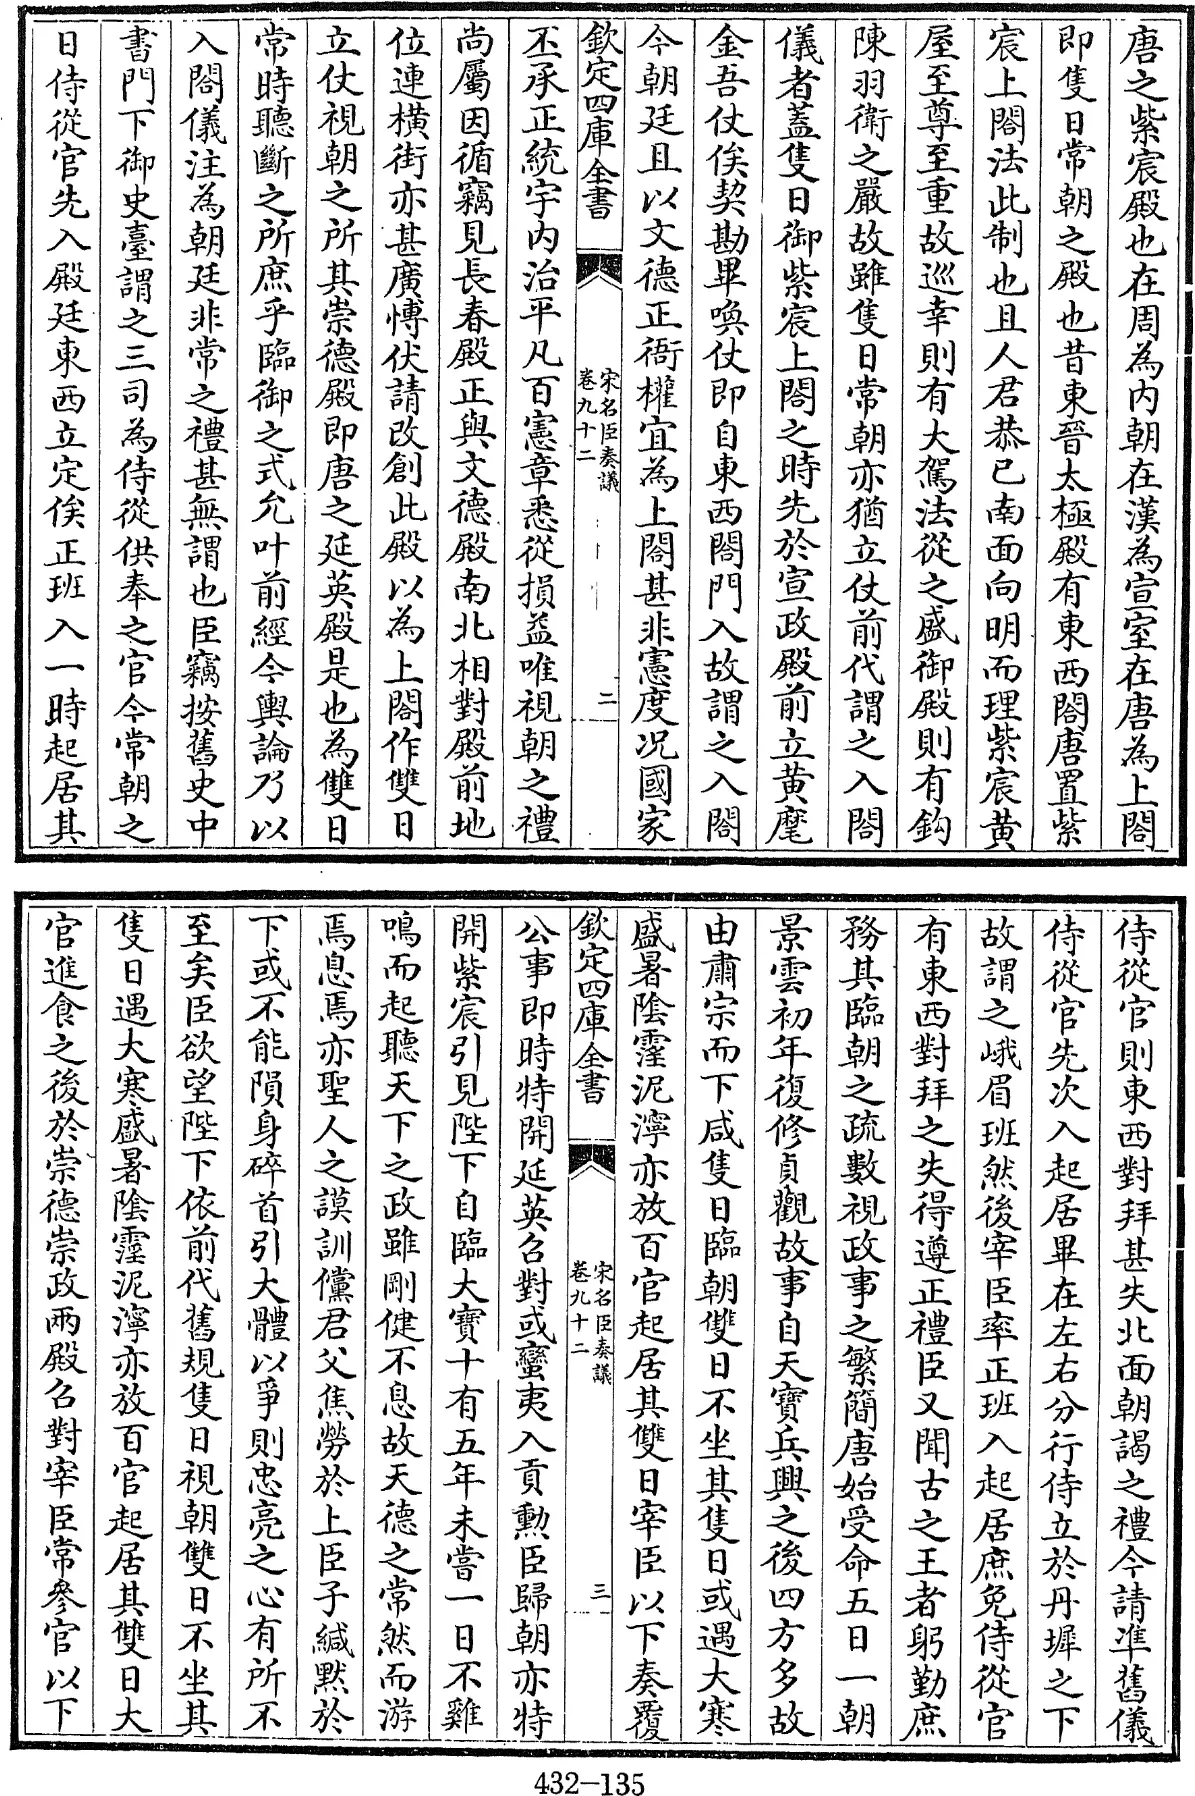 唐之紫宸殿也在周為内朝在漢為宣室在唐為上閤
即隻日常朝之殿也昔東晉太極殿有東西閤唐置紫
宸上閤法此制也且人君恭已南面向明而理紫宸黄
屋至尊至重故巡幸則有大駕法從之盛御殿則有鈎
陳羽衛之嚴故雖隻日常朝亦猶立仗前代謂之入閤
儀者蓋隻日御紫宸上閤之時先於宣政殿前立黄麾
金吾仗俟契勘畢喚仗即自東西閤門入故謂之入閤
今朝廷且以文德正衙權宜為上閤甚非憲度况國家
欽定四庫全書
宋名臣奏議
卷九十二
二
丕承正統宇内治平凡百憲章悉從損益唯視朝之禮
尚屬因循竊見長春殿正與文德殿南北相對殿前地
位連横街亦甚廣愽伏請改創此殿以為上閤作雙日
立仗視朝之所其崇德殿即唐之延英殿是也為雙日
常時聽斷之所庶乎臨御之式允叶前經今輿論乃以
入閤儀注為朝廷非常之禮甚無謂也臣竊按舊史中
書門下御史臺謂之三司為侍從供奉之官今常朝之
日侍從官先入殿廷東西立定俟正班入一時起居其
侍從官則東西對拜甚失北面朝謁之禮今請凖舊儀
侍從官先次入起居畢在左右分行侍立於丹墀之下
故謂之峨眉班然後宰臣率正班入起居庶免侍從官
有東西對拜之失得遵正禮臣又聞古之王者躬勤庶
務其臨朝之疏數視政事之繁簡唐始受命五日一朝
景雲初年復修貞觀故事自天寶兵興之後四方多故
由肅宗而下咸隻日臨朝雙日不坐其隻日或遇大寒
盛暑陰霪泥濘亦放百官起居其雙日宰臣以下奏覆
欽定四庫全書
宋名臣奏議
卷九十二
三
公事即時特開延英召對或蠻夷入貢勲臣歸朝亦特
開紫宸引見陛下自臨大寶十有五年未嘗一日不雞
鳴而起聽天下之政雖剛健不息故天德之常然而游
焉息焉亦聖人之謨訓儻君父焦勞於上臣子緘默於
下或不能隕身碎首引大體以爭則忠亮之心有所不
至矣臣欲望陛下依前代舊規隻日視朝雙日不坐其
隻日遇大寒盛暑陰霪泥濘亦放百官起居其雙日大
官進食之後於崇德崇政兩殿召對宰臣常參官以下
432-135